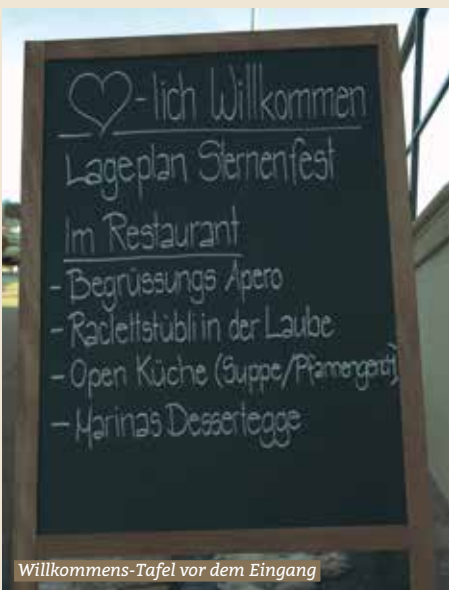 -lich Willkommen
Lageplan Sternenfest
Im Restaurant
- Begrüssungs Apero
- Raclettstübli in der Laube
- Open Küche (Suppe/Pfannengericht)
- Marinas Dessertegge
Willkommens-Tafel vor dem Eingang